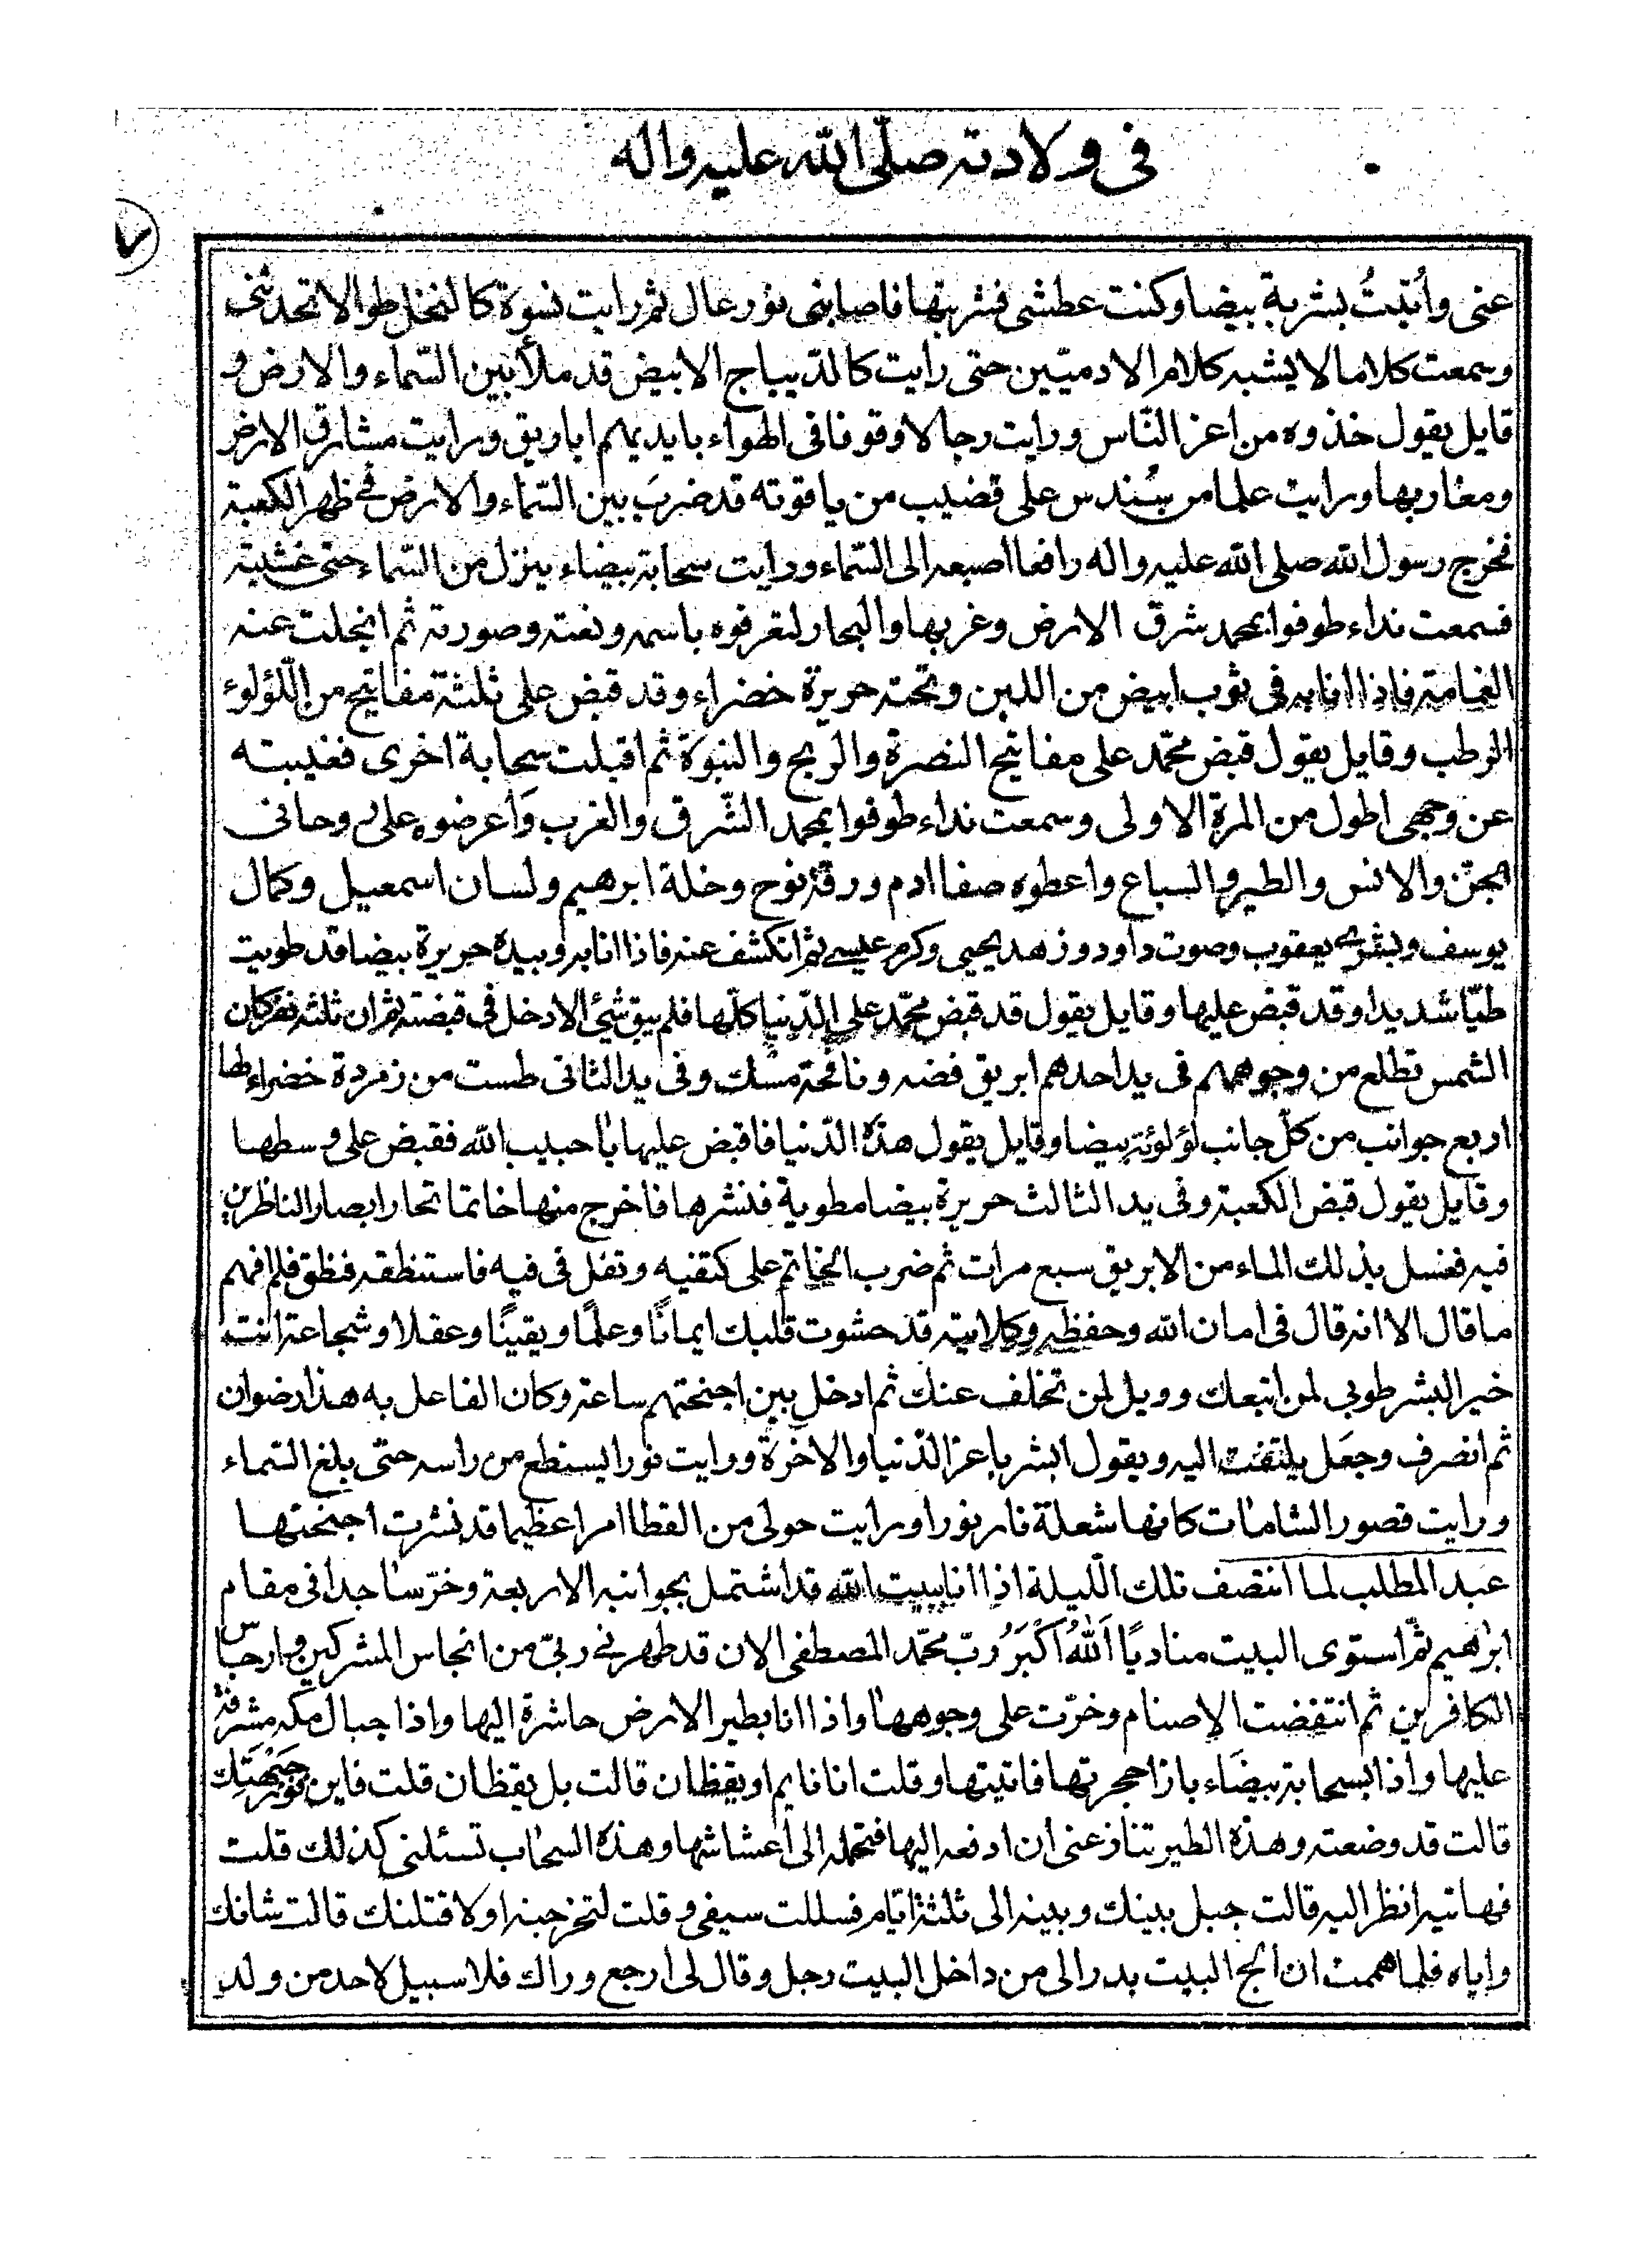 فى ولادته صلّى الله عليه واله
عنى واُتيتُ بشربة بيضا وكنت عطشى فشربتها فاصابنى نور عال ثم رايت نسوة كالنخل طوالا تحدثنى
وسمعت كلاما لا يشبه كلام الادميّين حتى رايت كالدّيباج الابيض قد ملأ بين السّماء والارض و
قايل يقول خذوه من اعز النّاس ورايت رجالا وقوفا فى الهواء بايديهم اباريق ورايت مشارق الارض
ومغاربها ورايت علما من سُندس على قضيب من ياقوته قد ضربَ بين السّماء والارض فى ظهر الكعبة
فخرج رسول الله صلى الله عليه واله رافعا اصبعه الى السّماء ورايت سحابة بيضاء ينزل من السّماء حتى غشيته
فسمعت نداء طوفوا بمحمد شرق الارض وغربها والبحار لتعرفوه باسمه ونعته وصورته ثم انجلت عنه
الغمامة فاذا انا به فى ثوب ابيض من اللبن وتحته حريرة خضراء وقد قبض على ثلثة مفاتيح من اللّؤلوء
الرطب وقايل يقول قبض محمّد على مفاتيح النصرة والريح والنبوة ثم اقبلت سحابة اخرى فغيبته
عن وجهى اطول من المرة الاولى وسمعت نداء طوفوا بمحمد الشّرق والغرب وَاعرضوه على روحانى
الجنّ والانس والطير والسباع واعطوه صفا ادم ورقة نوح وخلة ابرهيم ولسان اسمعيل وكمال
يوسف وبشرى يعقوب وصوت داود وزهد يحيى وكرم عيسى ثم انكشف عنه فاذا انا به وبيده حريرة بيضا قد طويت
طيّا شديدا وقد قبض عليها وقايل يقول قد قبض محمّد على الدّنيا كلّها فلم يبق شئ الا دخل فى قبضته ثم ان ثلثه نفر كان
الشمس تطلع من وجوههم فى يد احدهم ابريق فضه ونافحة مسك وفى يد الثانى طست من زمردة خضراء لها
اربع جوانب من كلّ جانب لؤلوئة بيضا وقايل يقول هذه الدّنيا فاقبض عليها يا حبيب الله فقبض على وسطها
وقايل يقول قبض الكعبة وفى يد الثالث حريرة بيضا مطوية فنشرها فاخرج منها خاتما تحار ابصار الناظرين
فيه فغسل بذلك الماء من الابريق سبع مرات ثم ضرب الخاتم على كتفيه وتفل فى فيه فاستنطقه فنطق فلم افهم
ما قال الا انه قال فى امان الله وحفظه وكلايته قد حشوت قلبك ايمانًا وعلمًا ويقينًا وعقلا وشجاعة انت
خير البشر طوبى لمن اتبعك وويل لمن تخلف عنك ثم ادخل بين اجنحتهم ساعة وكان الفاعل به هذا رضوان
ثم انصرف وجعَل يلتفت اليه ويقول ابشر يا عز الدّنيا والاخرة ورايت نورا يسطع من راسه حتى بلغ السّماء
ورايت قصور الشامات كانها شعلة نار نورا ورايت حولى من القطا امرا عظيما قد نشرت اجنحتها
عبد المطلب لما انتصف تلك اللّيلة اذا انا ببيت الله قد اشتمل بجوانبه الاربعة وخرّ ساجدا فى مقام
ابرهيم ثمّ استوى البيت مناديًا اَللهُ اَكْبَرُ ربّ محمّد المصطفى الان قد طهرنى ربّى من انجاس المشركين وارجاس
الكافرين ثم انتفضت الاصنام وخرّت على وجوهها واذا انا بطير الارض حاشرة اليها واذا جبال مكه مشرفة
عليها واذا بسحابة بيضَاء بازا حجرتها فاتيتها وقلت انا نايم او يقظان قالت بل يقظان قلت فاين نور جَبْهَتك
قالت قد وضعته وهذه الطير تنازعنى ان ادفعه اليها فتحمله الى اعشاشها وهذه السحاب تسئلنى كذلك قلت
فهاتيه انظر اليه قالت حيل بينك وبينه الى ثلثة ايّام فسللت سيفى وقلت لتخرجنه او لاقتلنك قالت شانك
واياه فلما هممت ان الج البيت بدر الى من داخل البيت رجل وقال لى ارجع وراك فلا سبيل لاحد من ولد